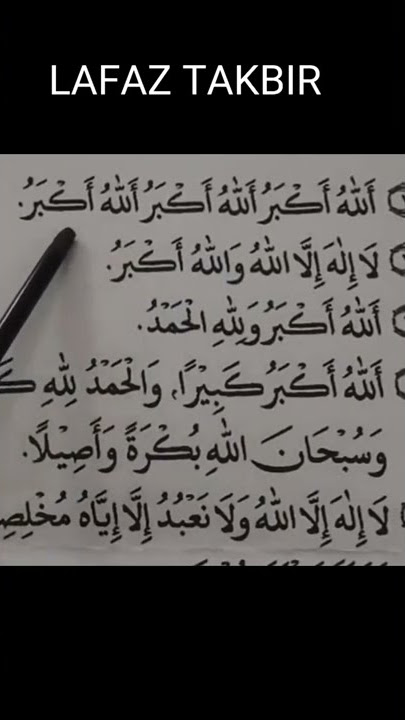 LAFAZ TAKBIR
أَللهُ أَكْبَرُ أَللهُ أَكْبَرُ أَللهُ أَكْبَرُ.
لَا إِلٰهَ إِلَّا اللهُ وَاللهُ أَكْبَرُ.
أَللهُ أَكْبَرُ وَلِلّٰهِ الْحَمْدُ.
أَللهُ أَكْبَرُ كَبِيْرًا، وَالْحَمْدُ لِلّٰهِ
وَسُبْحَانَ اللهِ بُكْرَةً وَأَصِيْلًا.
لَا إِلٰهَ إِلَّا اللهُ وَلَا نَعْبُدُ إِلَّا إِيَّاهُ